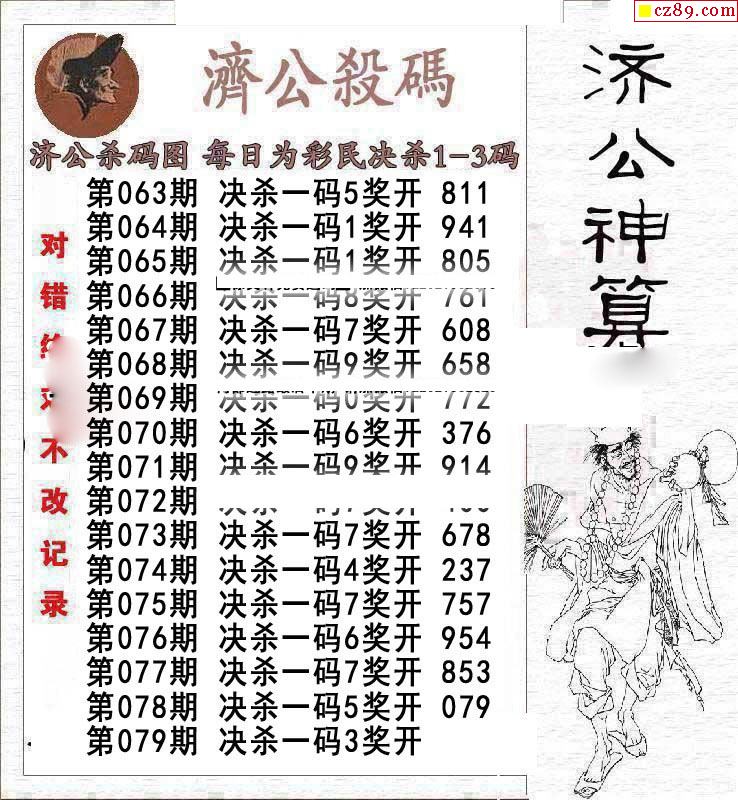 cz89.com
濟公殺碼
济公杀码图 每日为彩民决杀1-3码
第063期 决杀一码5奖开 811
第064期 决杀一码1奖开 941
第065期 决杀一码1奖开 805
第066期 决杀一码8奖开 761
第067期 决杀一码7奖开 608
第068期 决杀一码9奖开 658
第069期 决杀一码0奖开 772
第070期 决杀一码6奖开 376
第071期 决杀一码9奖开 914
第072期
第073期 决杀一码7奖开 678
第074期 决杀一码4奖开 237
第075期 决杀一码7奖开 757
第076期 决杀一码6奖开 954
第077期 决杀一码7奖开 853
第078期 决杀一码5奖开 079
第079期 决杀一码3奖开
对错绝对不改记录
济公神算